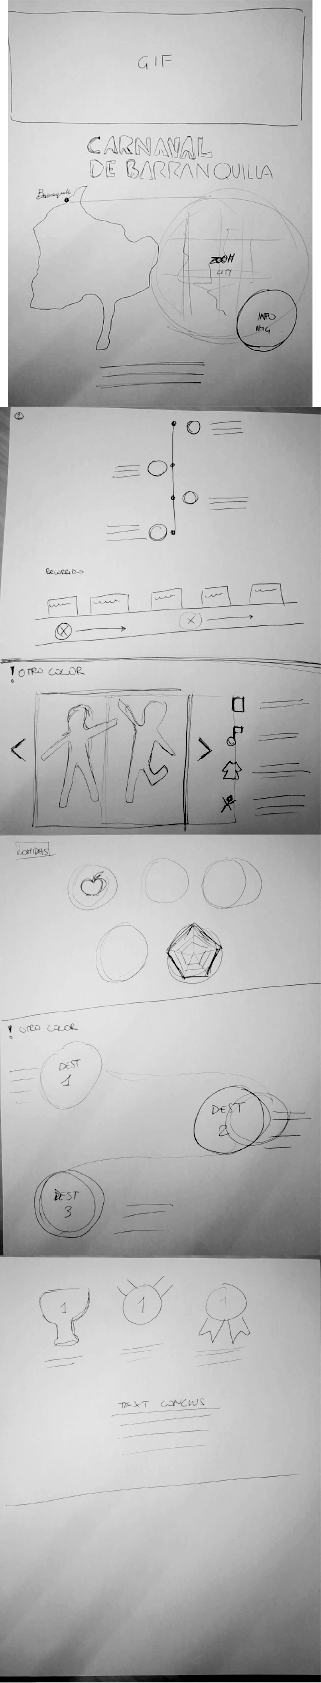 GIF
CARNAVAL
DE BARRANQUILLA
Barranquilla
ZOOM
CITY
INFO
②
RECORRIDO
X
X
! OTRO COLOR
COMIDAS
! OTRO COLOR
DEST
1
DEST
2
DEST
3
1
1
1
TEXT CONCLUS